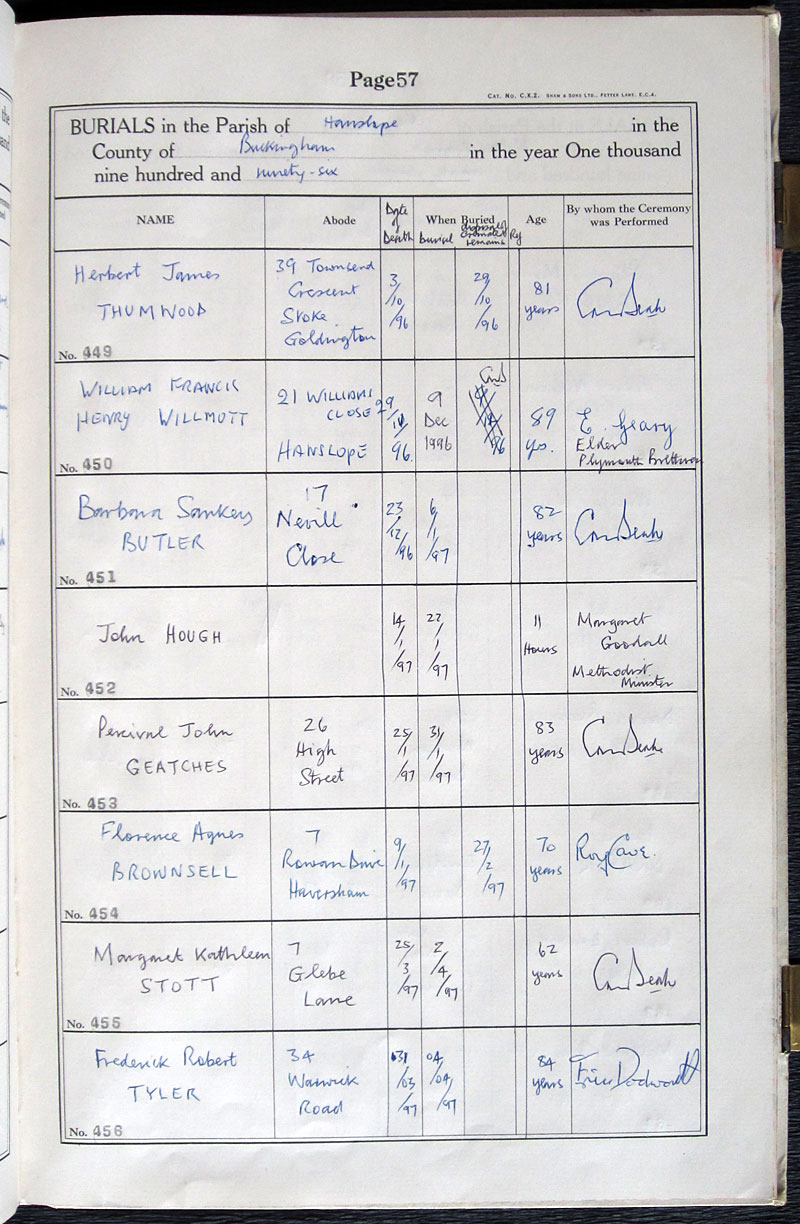 Page57
CAT. NO. C.X.2. SHAW & SONS LTD., FETTER LANE, E.C.4.
BURIALS in the Parish of Hanslope in the
County of Buckingham in the year One thousand
nine hundred and ninety-six
NAME Abode Date of Death When Buried Age By whom the Ceremony was Performed
Burial disposal of cremated remains
Herbert James
THUMWOOD
39 Townsend
Crescent
Stoke
Goldington
3/10/96
29/10/96
81
years
No. 449
WILLIAM FRANCIS
HENRY WILLMOTT
21 WILLIAMS
CLOSE
HANSLOPE
29/11/96
9
Dec
1996
89
yo.
E. Geary
Elder
Plymouth Brethren
No. 450
Barbara Sankey
BUTLER
17
Nevill
Close
23/12/96
6/1/97
82
years
No. 451
John HOUGH
14/1/97
22/1/97
11
Hours
Margaret
Goodall
Methodist
Minister
No. 452
Percival John
GEATCHES
26
High
Street
25/1/97
31/1/97
83
years
No. 453
Florence Agnes
BROWNSELL
7
Rowan Drive
Haversham
9/1/97
27/2/97
70
years
Roy Cave.
No. 454
Margaret Kathleen
STOTT
7
Glebe
Lane
25/3/97
2/4/97
62
years
No. 455
Frederick Robert
TYLER
34
Warwick
Road
31/03/97
04/04/97
84
years
No. 456